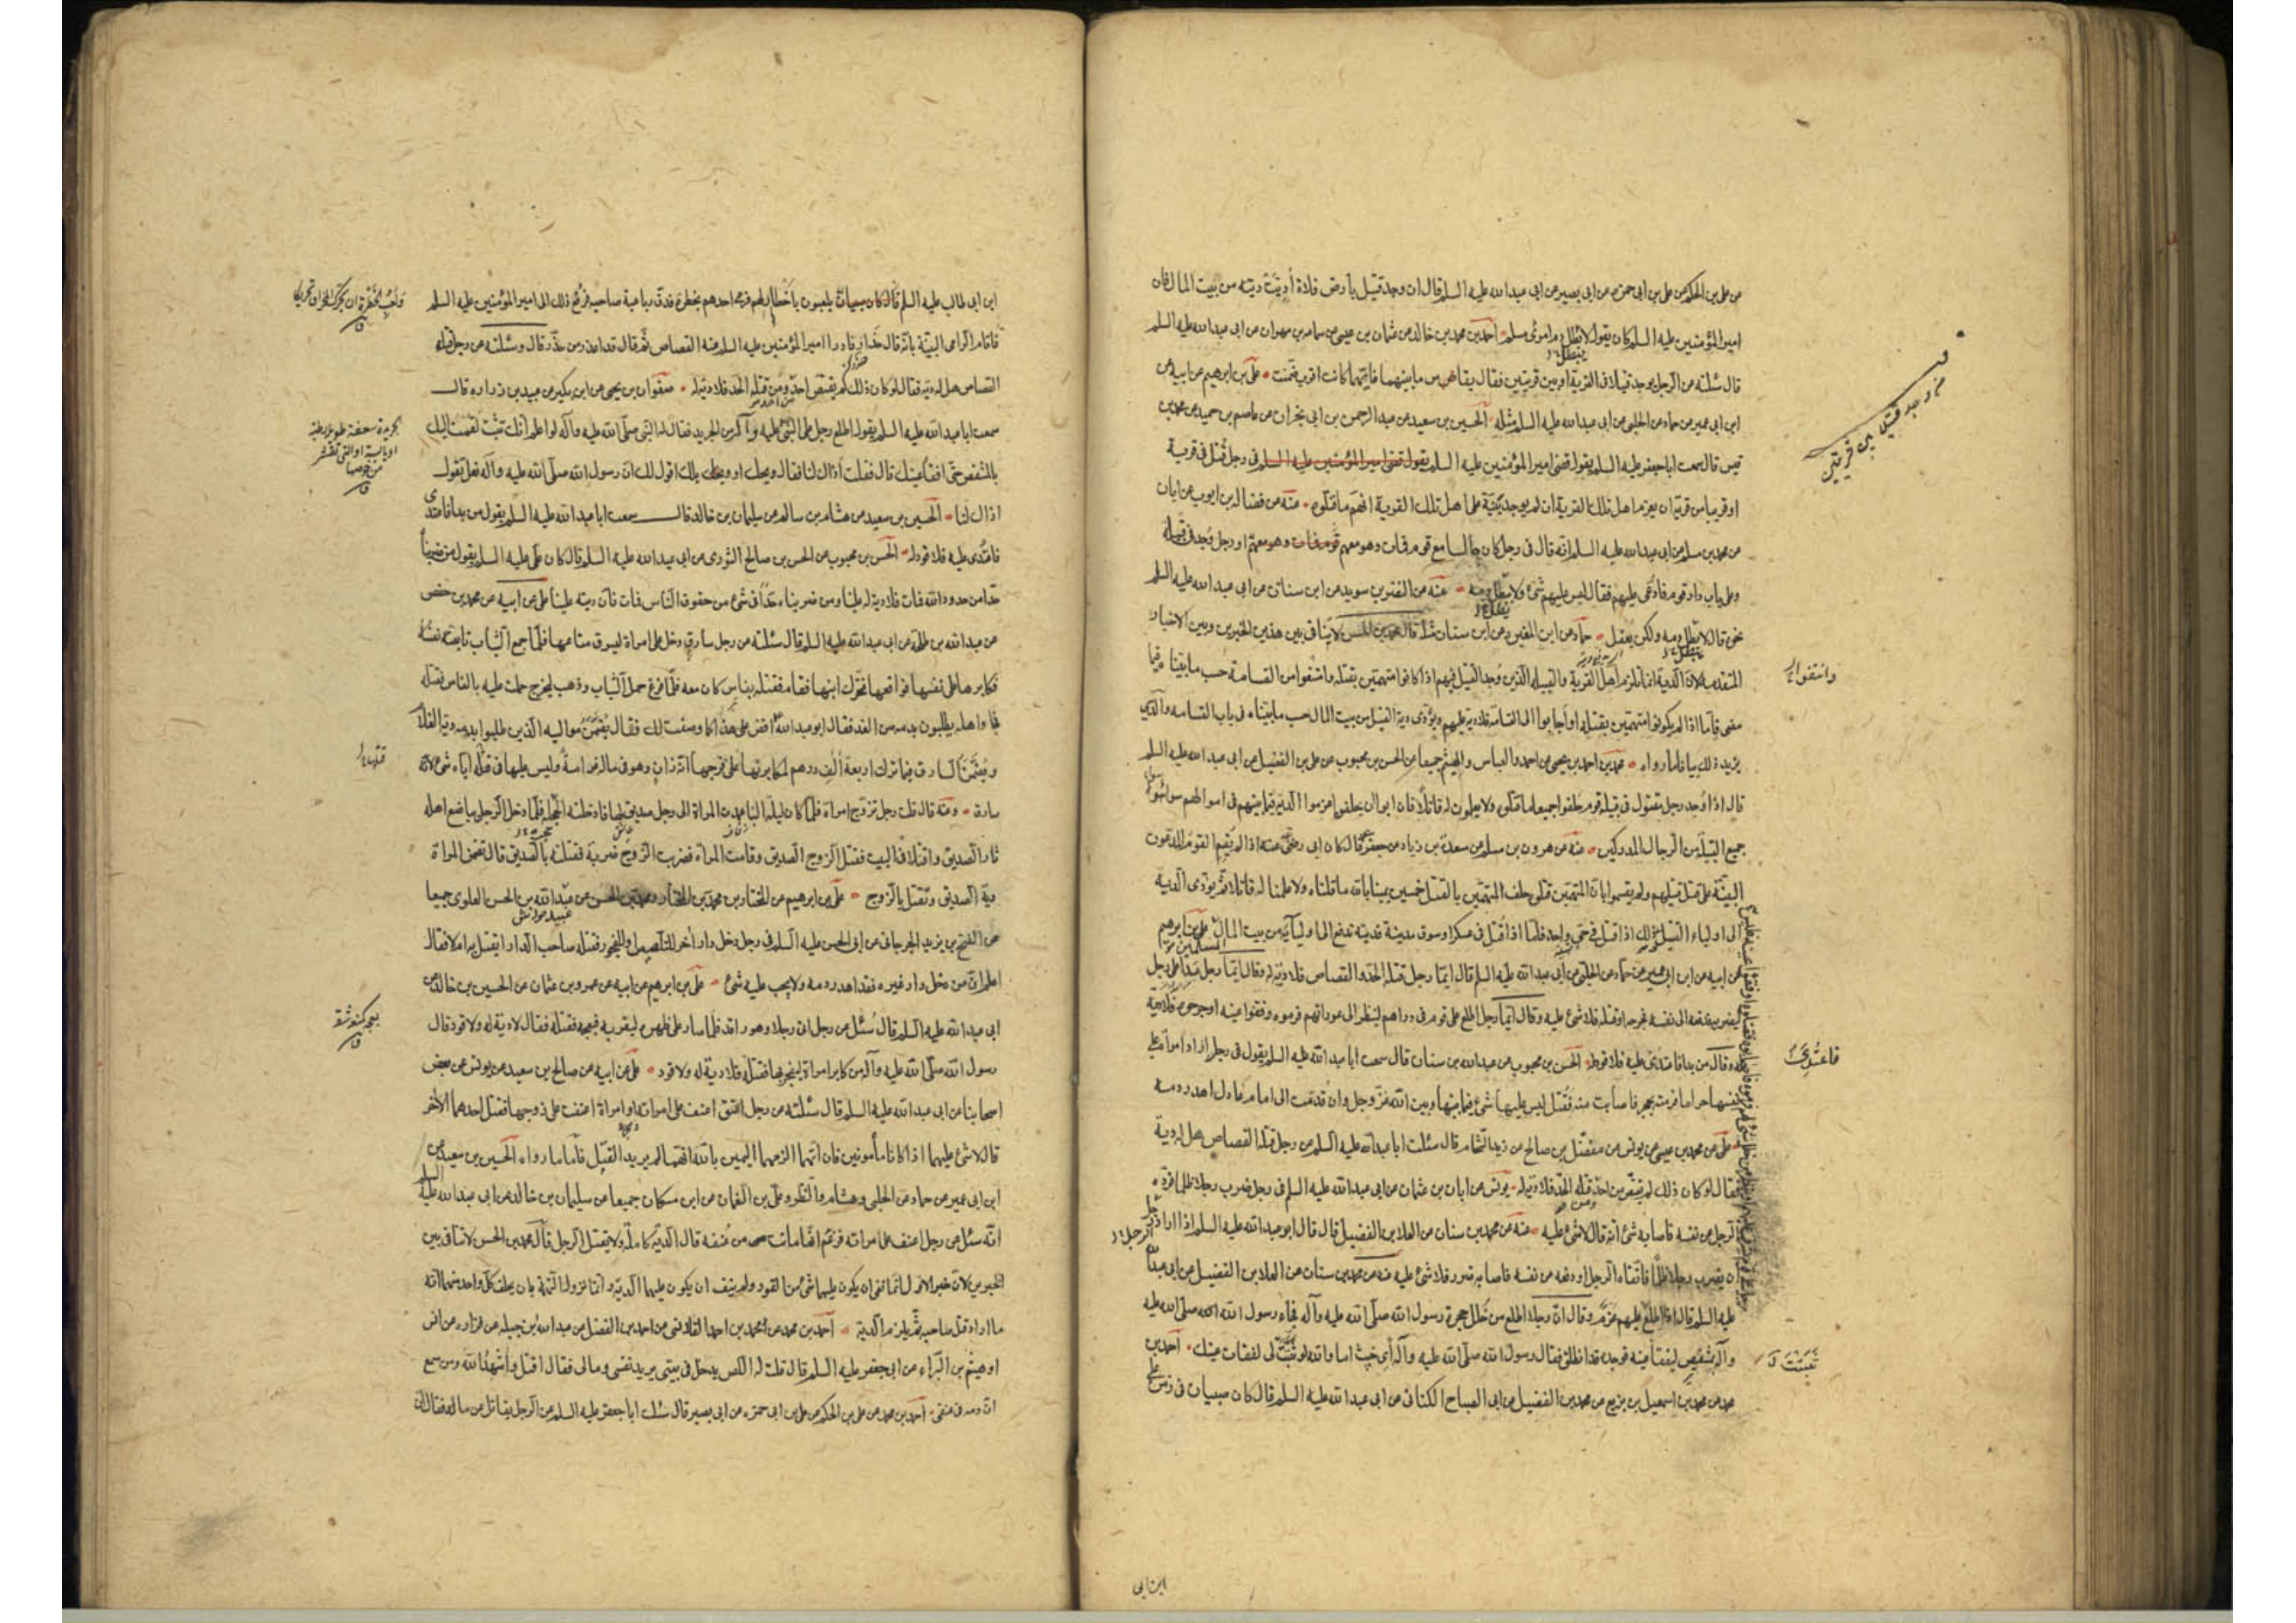 من علي بن الحكم عن علي بن ابي حمزه عن ابي بصير عن ابي عبد الله عليه السلم قال ان وجد قتيل بأرض فلاة أديت ديته من بيت المال فان
امير المؤمنين عليه السلم كان يقول لا يطل دم امرئ مسلم احمد بن محمد بن خالد عن عثمان بن عيسى عن سماعه بن مهران عن ابي عبد الله عليه السلم
قال سئلته عن الرجل يوجد قتيلا في القرية او بين قريتين فقال يقاس ما بينهما فايتهما كانت اقرب ضمنت علي بن ابرهيم عن ابيه عن
ابن ابي عمير عن حماد عن الحلبي عن ابي عبد الله عليه السلم مثله الحسين بن سعيد عن عبد الرحمن بن ابي نجران عن عاصم بن حميد عن محمد بن
قيس قال سمعت ابا جعفر عليه السلم يقول قضى امير المؤمنين عليه السلم يقول قضى امير المؤمنين عليه السلم في رجل قتل في قرية
او قريبا من قرية ان يغرم اهل تلك القرية ان لم يوجد بينة على اهل تلك القرية انهم ما قتلوه منه عن فضاله بن ايوب عن ابان
عن محمد بن مسلم عن ابي عبد الله عليه السلم انه قال في رجل كان جالسا مع قوم فمات وهو معهم او رجل وجد في قبيلة
وعلى باب دار قوم فادعي عليهم فقال ليس عليهم شئ ولا يبطل دمه عنه عن النضر بن سويد عن ابن سنان عن ابي عبد الله عليه السلم
نحوه قال لا يبطل دمه ولكن يعقل حماد عن ابن المغيره عن ابن سنان مثله قال محمد بن الحسن لا ينافي بين هذين الخبرين وبين الاخبار
المتقدمه لان الدية انما تلزم اهل القرية والقبيله الذين وجد القتيل فيهم اذا كانوا متهمين بقتله وامتنعوا من القسامة حسب ما بيناه فيما
مضى فاما اذا لم يكونوا متهمين بقتله او اجابوا الى القسامة فلا دية عليهم ويؤدى دية القتيل من بيت المال حسب ما بيناه في باب القسامه والذي
يزيد ذلك بيانا ما رواه محمد بن احمد بن يحيى عن احمد والعباس والهيثم جميعا عن الحسن بن محبوب عن علي بن الفضيل عن ابي عبد الله عليه السلم
قال اذا وجد رجل مقتول في قبيلة قوم حلفوا جميعا ما قتلوه ولا يعلمون له قاتلا فان ابوا ان يحلفوا اغرموا الدية فيما بينهم في اموالهم سواء
جميع القبيلة من الرجال المدركين عنه عن هرون بن مسلم عن مسعدة بن زياد عن جعفر قال كان ابي رضي عنه اذا لم يقم القوم المدعون
البينة على قتل قتيلهم ولم يقسموا بان المتهمين قتلوه حلف المتهمين بالقتل خمسين يمينا بالله ما قتلناه ولا علمنا له قاتلا ثم يؤدى الدية
الى اولياء القتيل ذلك اذا قتل في حي واحد فاما اذا قتل في عسكر او سوق مدينة فديته تدفع الى اوليائه من بيت المال علي بن ابرهيم
عن ابيه عن ابن ابي عمير عن حماد عن الحلبي عن ابي عبد الله عليه السلم قال ايما رجل قتله الحد والقصاص فلا دية له وقال ايما رجل عدا على رجل
ليضربه فدفعه الى نفسه فجرحه او قتله فلا شئ عليه وقال ايما رجل اطلع على قوم في دارهم لينظر الى عوراتهم فرموه ففقئوا عينه او جرحوه فلا دية
له وقال من بدأ فاعتدى عليه فلا قود له الحسن بن محبوب عن عبد الله بن سنان قال سمعت ابا عبد الله عليه السلم يقول في رجل اراد امرأة على
نفسها حراما فرمته بحجر فاصابت منه فقتل ليس عليها شئ فيما بينها وبين الله عز وجل وان قدمت الى امام عادل اهدر دمه
علي عن محمد بن عيسى عن يونس عن مفضل بن صالح عن زيد الشحام قال سئلت ابا عبد الله عليه السلم عن رجل قتله القصاص هل له دية
فقال لو كان ذلك لم يقتص من احد ومن قتله الحد فلا دية له يونس عن ابان بن عثمان عن ابي عبد الله عليه السلم في رجل ضرب رجلا ظلما فرده
الرجل عن نفسه فاصابه شئ انه قال لا شئ عليه عنه عن محمد بن سنان عن العلا بن الفضيل قال قال ابو عبد الله عليه السلم اذا اراد رجل
ان يضرب رجلا ظلما فاتقاه الرجل او دفعه عن نفسه فاصابه ضرر فلا شئ عليه عنه عن محمد بن سنان عن العلا بن الفضيل عن ابي عبد الله
عليه السلم قال اذا اطلع عليهم وقال ان رجلا اطلع من خلل حجرة رسول الله صلى الله عليه وآله فجاء رسول الله صلى الله عليه
وآله بمشقص ليفقأ عينه فوجده قد انطلق فقال رسول الله صلى الله عليه وآله اي خبيث اما والله لو ثبت لي لفقأت عينك احمد بن
محمد عن محمد بن اسمعيل بن بزيع عن محمد بن الفضيل عن ابي الصباح الكناني عن ابي عبد الله عليه السلم قال كان صبيان في زمن علي
من وجد قتيل بين قريتين
فاعتدي
ابن ابي
ابن ابي طالب عليه السلم قال كان صبيان يلعبون باخطار لهم فرمى احدهم بخطره فدق رباعية صاحبه فرفع ذلك الى امير المؤمنين عليه السلم
فاقام الرامي البينة بانه قال حذار فادرا امير المؤمنين عليه السلم عنه القصاص ثم قال قد اعذر من حذر قال وسئلته عن رجل قتله
القصاص هل له دية فقال لو كان ذلك لم يقتص احد ومن قتله الحد فلا دية له صفوان بن يحيى عن ابن بكير عن عبيد بن زراره قال
سمعت ابا عبد الله عليه السلم يقول اطلع رجل على النبي عليه وآله من الجريد فقال له النبي صلى الله عليه وآله لو اعلم انك تثبت لقمت اليك
بالمشقص حتى افقأ عينك قال فقلت أذاك لنا فقال ويحك او ويلك اقول لك ان رسول الله صلى الله عليه وآله فعل تقول
اذاك لنا الحسين بن سعيد عن هشام بن سالم عن سليمان بن خالد قال سمعت ابا عبد الله عليه السلم يقول من بدا فاعتدى
فاعتدي عليه فلا قود له الحسن بن محبوب عن الحسن بن صالح الثوري عن ابي عبد الله عليه السلم قال كان علي عليه السلم يقول من ضربناه
حدا من حدود الله فمات فلا دية له علينا ومن ضربناه حدا في شئ من حقوق الناس فمات فان ديته علينا علي عن ابيه عن محمد بن حفص
عن عبد الله بن طلحة عن ابي عبد الله عليه السلم قال سئلته عن رجل سارق دخل على امراة ليسرق متاعها فلما جمع الثياب تابعته نفسه
فكابرها على نفسها فواقعها فتحرك ابنها فقام فقتله بفاس كان معه فلما فرغ حمل الثياب وذهب ليخرج حملت عليه بالفاس فقتلته
فجاء اهله يطلبون بدمه من الغد فقال ابو عبد الله اقض على هذا كما وصفت لك فقال يضمن مواليه الذين طلبوا بدمه دية الغلام
ويضمن السارق فيما ترك اربعة الف درهم لمكابرتها على فرجها انه زان وهو في ماله غرامة وليس عليها في قتلها اياه شئ لانه
سارق وعنه قال قلت رجل تزوج امراة فلما كان ليلة البنا عمدت المراة الى رجل صديق لها فادخلته الحجلة فلما دخل الرجل يباضع اهله
ثار الصديق واقتتلا في البيت فقتل الزوج الصديق وقامت المراة فضربت الزوج ضربة فقتلته بالصديق قال تضمن المراة
دية الصديق وتقتل بالزوج علي بن ابرهيم عن المختار بن محمد بن المختار ومحمد بن الحسن عن عبد الله بن الحسن العلوي جميعا
عن الفتح بن يزيد الجرجاني عن ابي الحسن عليه السلم في رجل دخل دار آخر للتلصص او الفجور فقتله صاحب الدار ايقتل به ام لا فقال
اعلم ان من دخل دار غيره فقد اهدر دمه ولا يجب عليه شئ علي بن ابرهيم عن ابيه عن عمرو بن عثمان عن الحسين بن خالد عن
ابي عبد الله عليه السلم قال سئل عن رجل اتى رجلا وهو راقد فلما صار على ظهره ليقربه فبعجه فقتله فقال لا دية له ولا قود قال
رسول الله صلى الله عليه وآله من كابر امراة ليفجر بها فقتلته فلا دية له ولا قود علي عن ابيه عن صالح بن سعيد عن يونس عن بعض
اصحابنا عن ابي عبد الله عليه السلم قال سئلته عن رجل اعنف على امراته او امراة اعنفت على زوجها فقتل احدهما الآخر
قال لا شئ عليهما اذا كانا مأمونين فان اتهما الزمهما اليمين بالله انهما لم يريدا القتل فاما ما رواه الحسين بن سعيد عن
ابن ابي عمير عن حماد عن الحلبي وهشام والنضر وعلي بن النعمان عن ابن مسكان جميعا عن سليمان بن خالد عن ابي عبد الله عليه السلم
انه سئل عن رجل اعنف على امراته فزعم انها ماتت من عنفه قال الدية كاملة ولا يقتل الرجل قال محمد بن الحسن لا تنافي بين
الخبرين لان خبر الاول انما نفى ان يكون عليهما شئ من القود ولم ينف ان يكون عليهما الدية وانما نزول التهمة بان يحلف كل واحد منهما انه
ما اراد قتل صاحبه ثم يلزم الدية احمد بن محمد عن محمد بن احمد القلانسي عن احمد بن الفضل عن عبد الله بن جبله عن فزاره عن انس
او هيثم بن البراء عن ابي جعفر عليه السلم قال قلت له اللص يدخل في بيتي يريد نفسي ومالي فقال اقتل واشهد الله ومن سمع
ان دمه في عنقي احمد بن محمد عن علي بن الحكم عن علي بن ابي حمزه عن ابي بصير قال سئلت ابا جعفر عليه السلم عن الرجل يقاتل عن ماله فقال ان